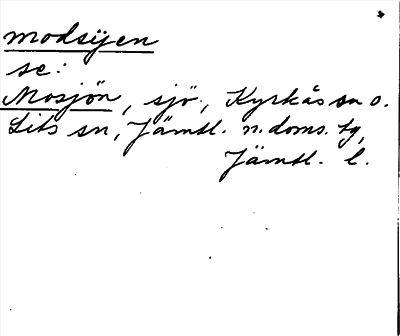 modsijen
se:
Mosjön, sjö, Kyrkås sn o.
Lits sn, Jämtl. n. doms. tg,
Jämtl. l.